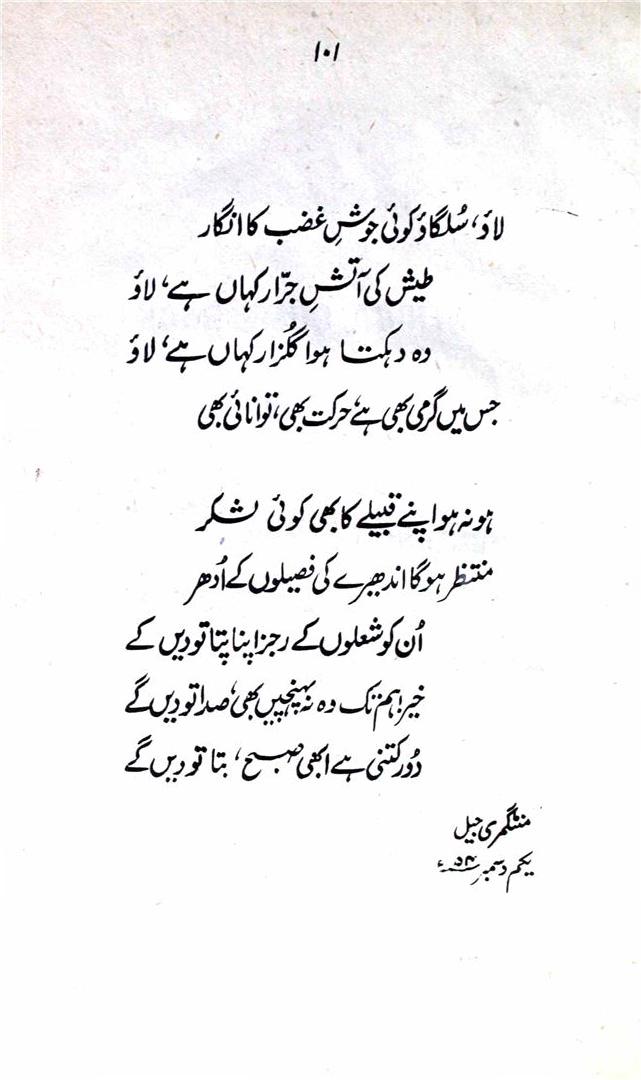 ۱۰۱
لاؤ، سُلگاؤ کوئی جوشِ غضب کا انگار
طیش کی آتشِ جرّار کہاں ہے، لاؤ
وہ دہکتا ہوا گلزار کہاں ہے، لاؤ
جس میں گرمی بھی ہے، حرکت بھی، توانائی بھی
ہو نہ ہو اپنے قبیلے کا بھی کوئی لشکر
منتظر ہو گا اندھیرے کی فصیلوں کے اُدھر
اُن کو شعلوں کے رجز اپنا پتا تو دیں گے
خیر، ہم تک وہ نہ پہنچیں بھی، صدا تو دیں گے
دُور کتنی ہے ابھی صبح، بتا تو دیں گے
منٹگمری جیل
یکم دسمبر ۵۴ء